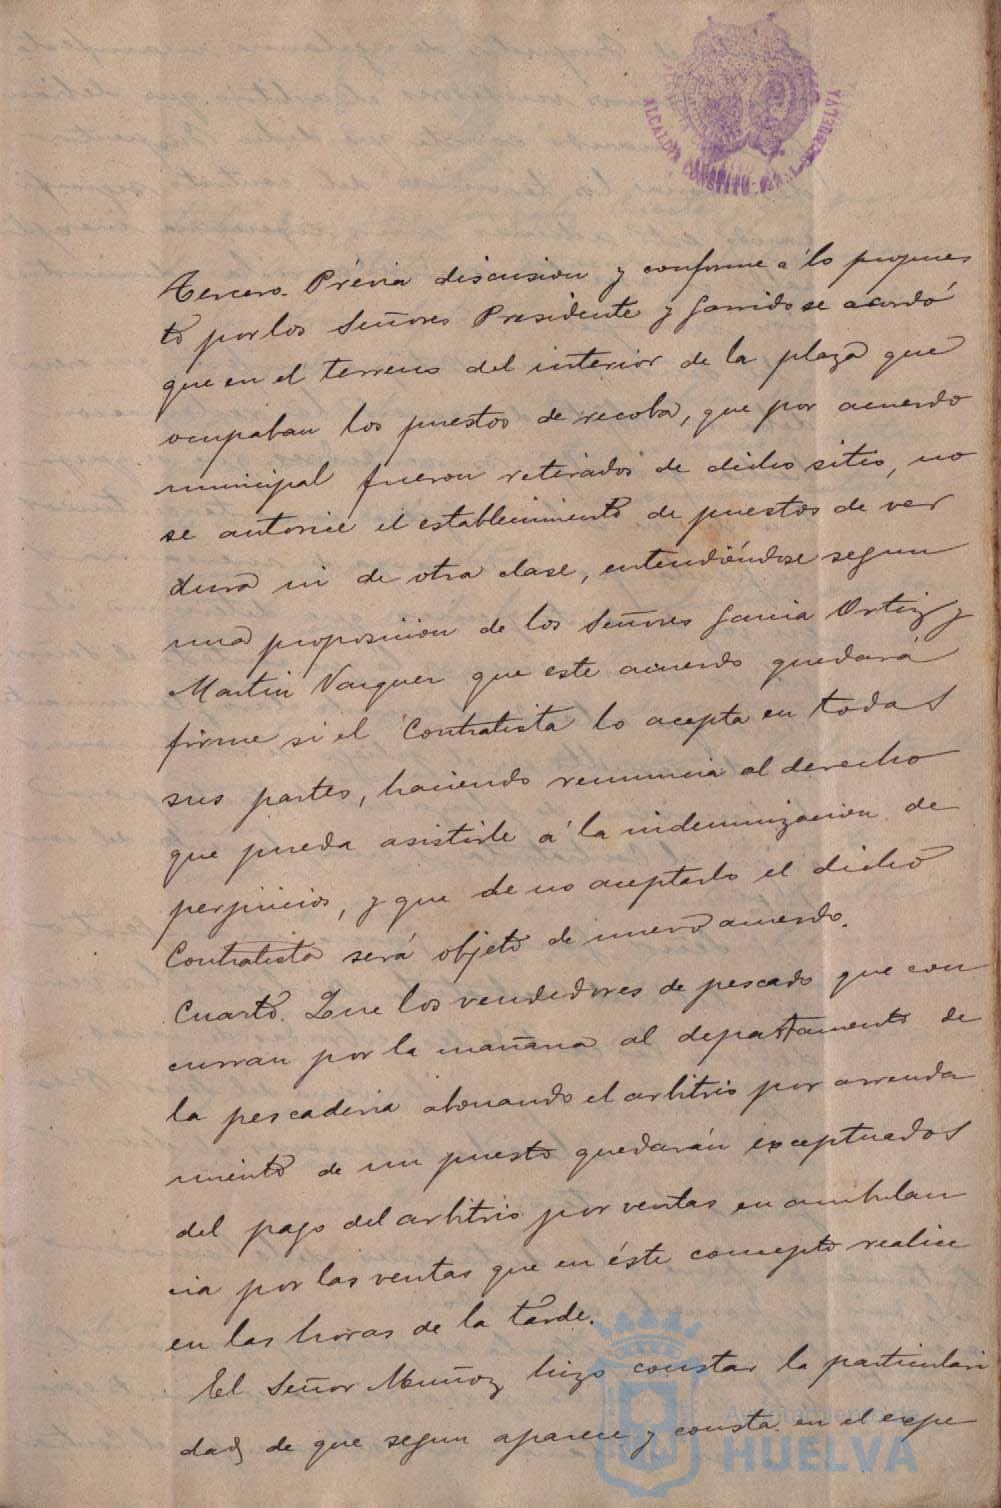 ALCALDIA CONSTITUCIONAL HUELVA
Tercero. Prévia discusion y conforme á lo propues
to por los Señores Presidente y Garrido se acordó
que en el terreno del interior de la plaza que
ocupaban los puestos de recoba, que por acuerdo
municipal fueron retirados de dicho sitio, no
se autorice el establecimiento de puestos de ver
dura ni de otra clase, entendiéndose segun
una proposicion de los Señores Garcia Ortiz y
Martin Vazquez que este acuerdo quedará
firme si el Contratista lo acepta en todas
sus partes, haciendo renuncia al derecho
que pueda asistirle á la indemnizacion de
perjuicios, y que de no aceptarlo el dicho
Contratista será objeto de nuevo acuerdo.
Cuarto. Que los vendedores de pescado que con
curran por la mañana al departamento de
la pescaderia abonando el arbitrio por arrenda
miento de un puesto quedarán exceptuados
del pago del arbitrio por ventas en ambulan
cia por las ventas que en éste concepto realice
en las horas de la tarde.
El Señor Muñoz hizo constar la particulari
dad de que segun aparece y consta en el expe
Ayuntamiento de
HUELVA